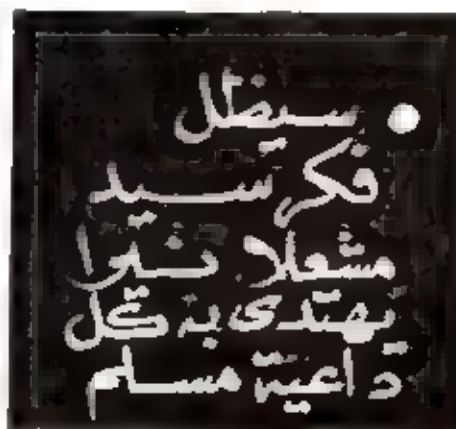 ● سيظل
فكر سيد
مشعلا نيرا
يهتدى به كل
داعية مسلم